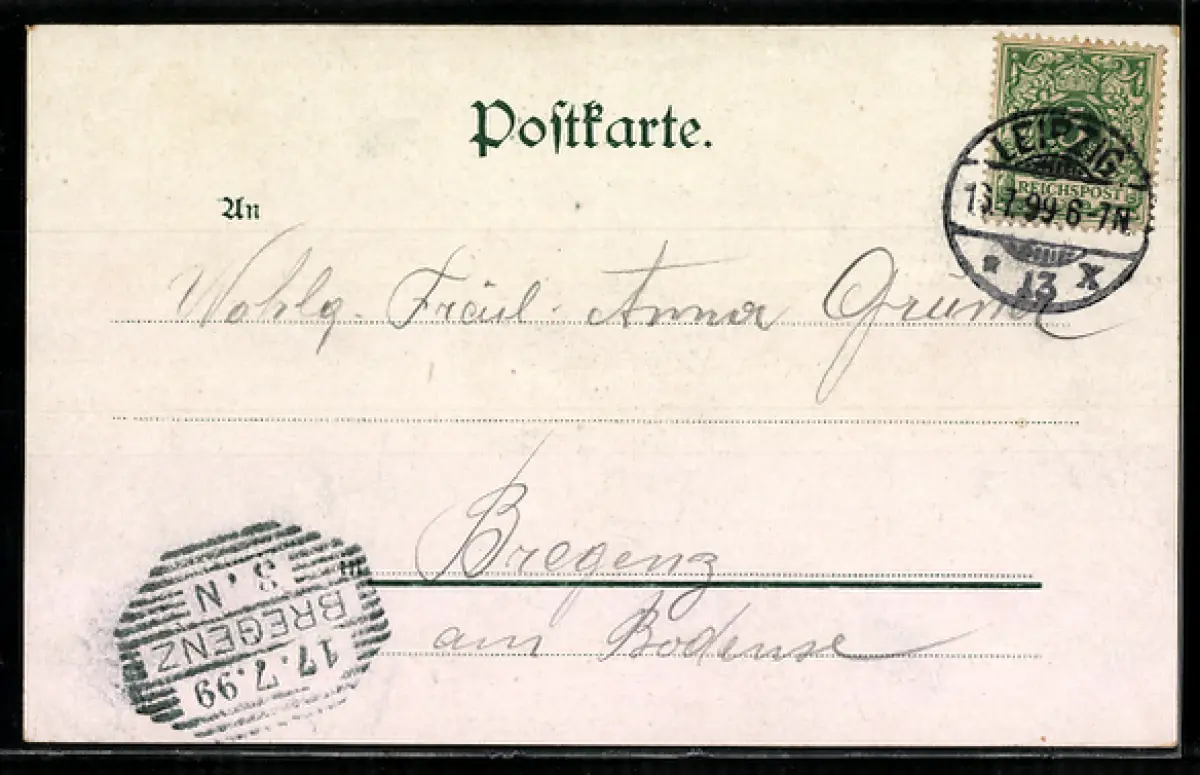 Postkarte.
5
REICHSPOST
LEIPZIG
7.99 6-7N.
* 13 X
An
Wohlg. Fräul. Anna
in Bregenz
am Bodense
8. N
BREGENZ
17.7.99